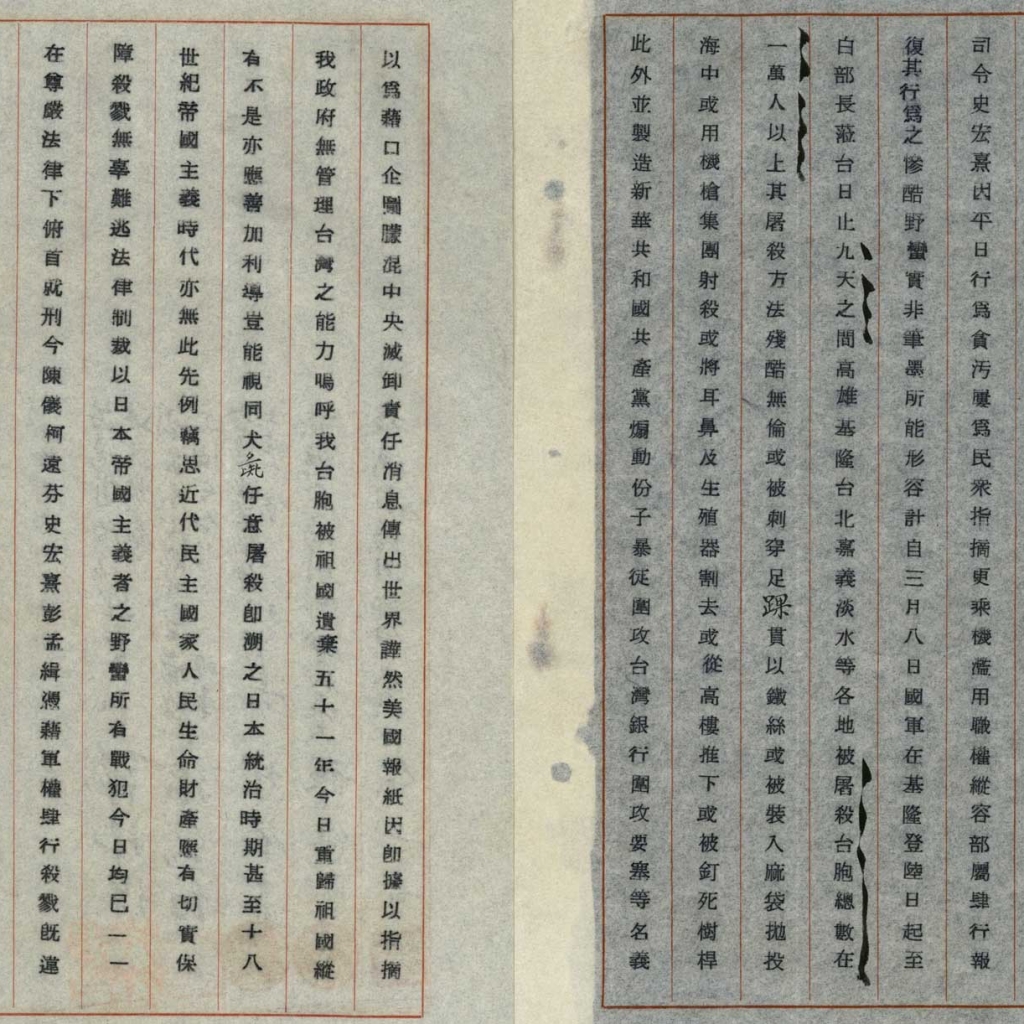 司令史宏熹因平日行爲貪汚屢爲民衆指摘更乘機濫用職權縱容部屬肆行報
復其行爲之慘酷野蠻實非筆墨所能形容計自三月八日國軍在基隆登陸日起至
白部長蒞台日止九天之間高雄基隆台北嘉義淡水等各地被屠殺台胞總數在
一萬人以上其屠殺方法殘酷無倫或被刺穿足踝貫以鐵絲或被裝入麻袋拋投
海中或用機槍集團射殺或將耳鼻及生殖器割去或從高樓推下或被釘死樹桿
此外並製造新華共和國共產黨煽動份子暴徒圍攻台灣銀行圍攻要塞等名義
以爲藉口企圖矇混中央滅卸責任消息傳出世界譁然美國報紙因卽據以指摘
我政府無管理台灣之能力嗚呼我台胞被祖國遺棄五十一年今日重歸祖國縱
有不是亦應善加利導豈能視同犬彘仔意屠殺卽溯之日本統治時期甚至十八
世紀帝國主義時代亦無此先例竊思近代民主國家人民生命財產應有切實保
障殺戮無辜難逃法律制裁以日本帝國主義者之野蠻所有戰犯今日均已一一
在尊嚴法律下俯首就刑今陳儀柯遠芬史宏熹彭孟緝憑藉軍權肆行殺戮旣違